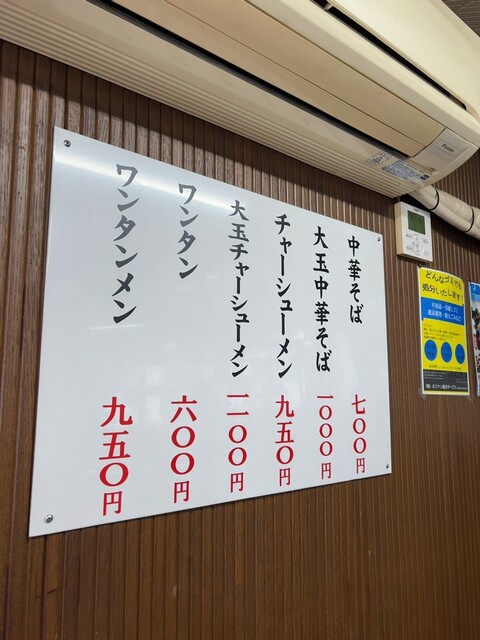 中華そば 七〇〇円
大玉中華そば 一〇〇〇円
チャーシューメン 九五〇円
大玉チャーシューメン 一二〇〇円
ワンタン 六〇〇円
ワンタンメン 九五〇円
どんなゴミでも
処分いたします!